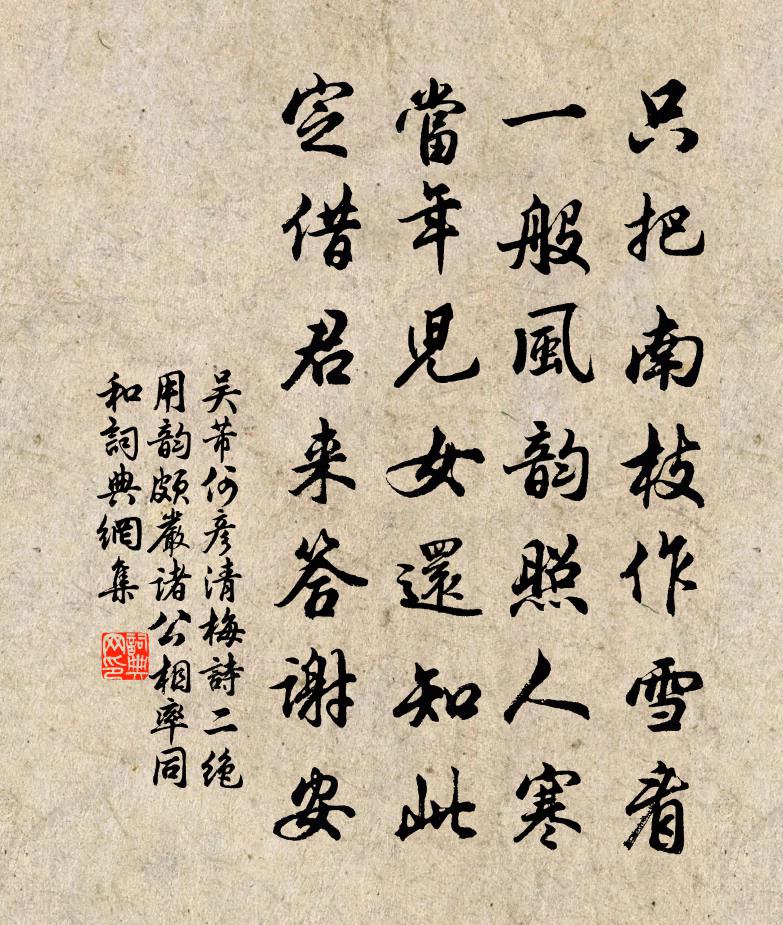 只把南枝作雪看
一般風韵照人寒
當年兒女還知此
定借君来答謝安
吴芾何彦清梅詩二絶
用韵頗嚴諸公相率同
和詞典網集
詞典網印